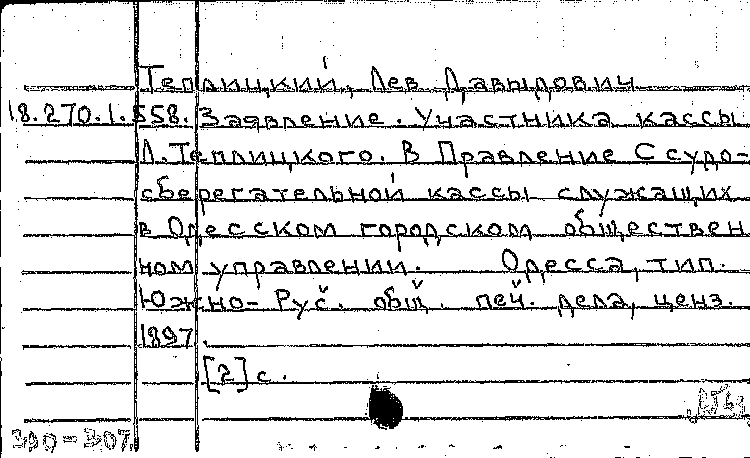 Теплицкий, Лев Давыдович
18.270.1.558. Заявление. Участника кассы
Л. Теплицкого. В Правление Ссудо-
сберегательной кассы служащих
в Одесском городском обществен
ном управлении. Одесса, тип.
Южно-Рус. общ. печ. дела, ценз.
1897.
[2] с.
300-307.